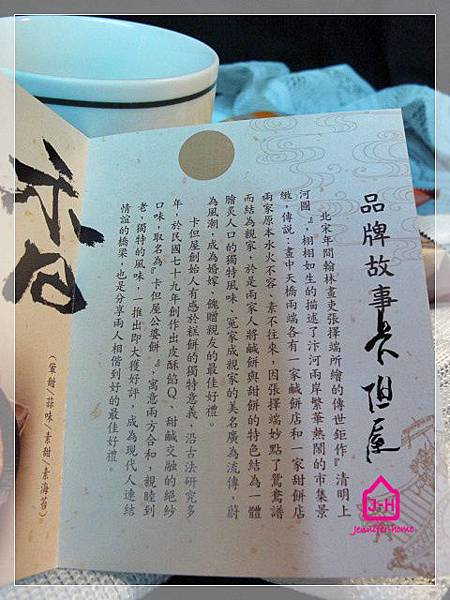 品牌故事 卡但屋
北宋年間翰林畫吏張擇端所繪的傳世鉅作『清明上
河圖』，栩栩如生的描述了汴河兩岸繁華熱鬧的市集景
緻，傳說：畫中天橋兩端各有一家鹹餅店和一家甜餅店
兩家原本水火不容、素不往來，因張擇端妙點了鴛鴦譜
而結為親家，於是兩家人將鹹餅與甜餅的特色結為一體
膾炙人口的獨特風味、冤家成親家的美名廣為流傳，蔚
為風潮，成為婚嫁、餽贈親友的最佳好禮。
卡但屋創始人有感於糕餅的獨特意義，沿古法研究多
年，於民國七十九年創作出皮酥餡Q、甜鹹交融的絕妙
口味，取名為『卡但屋公婆餅』，寓意兩方合和，親睦到
老，獨特的風味，一推出即大獲好評，成為現代人連結
情誼的橋梁，也是分享兩人相偕到好的最佳好禮。
（葷甜/蒜味/素甜/素海苔）
J-H
Jennifer-home